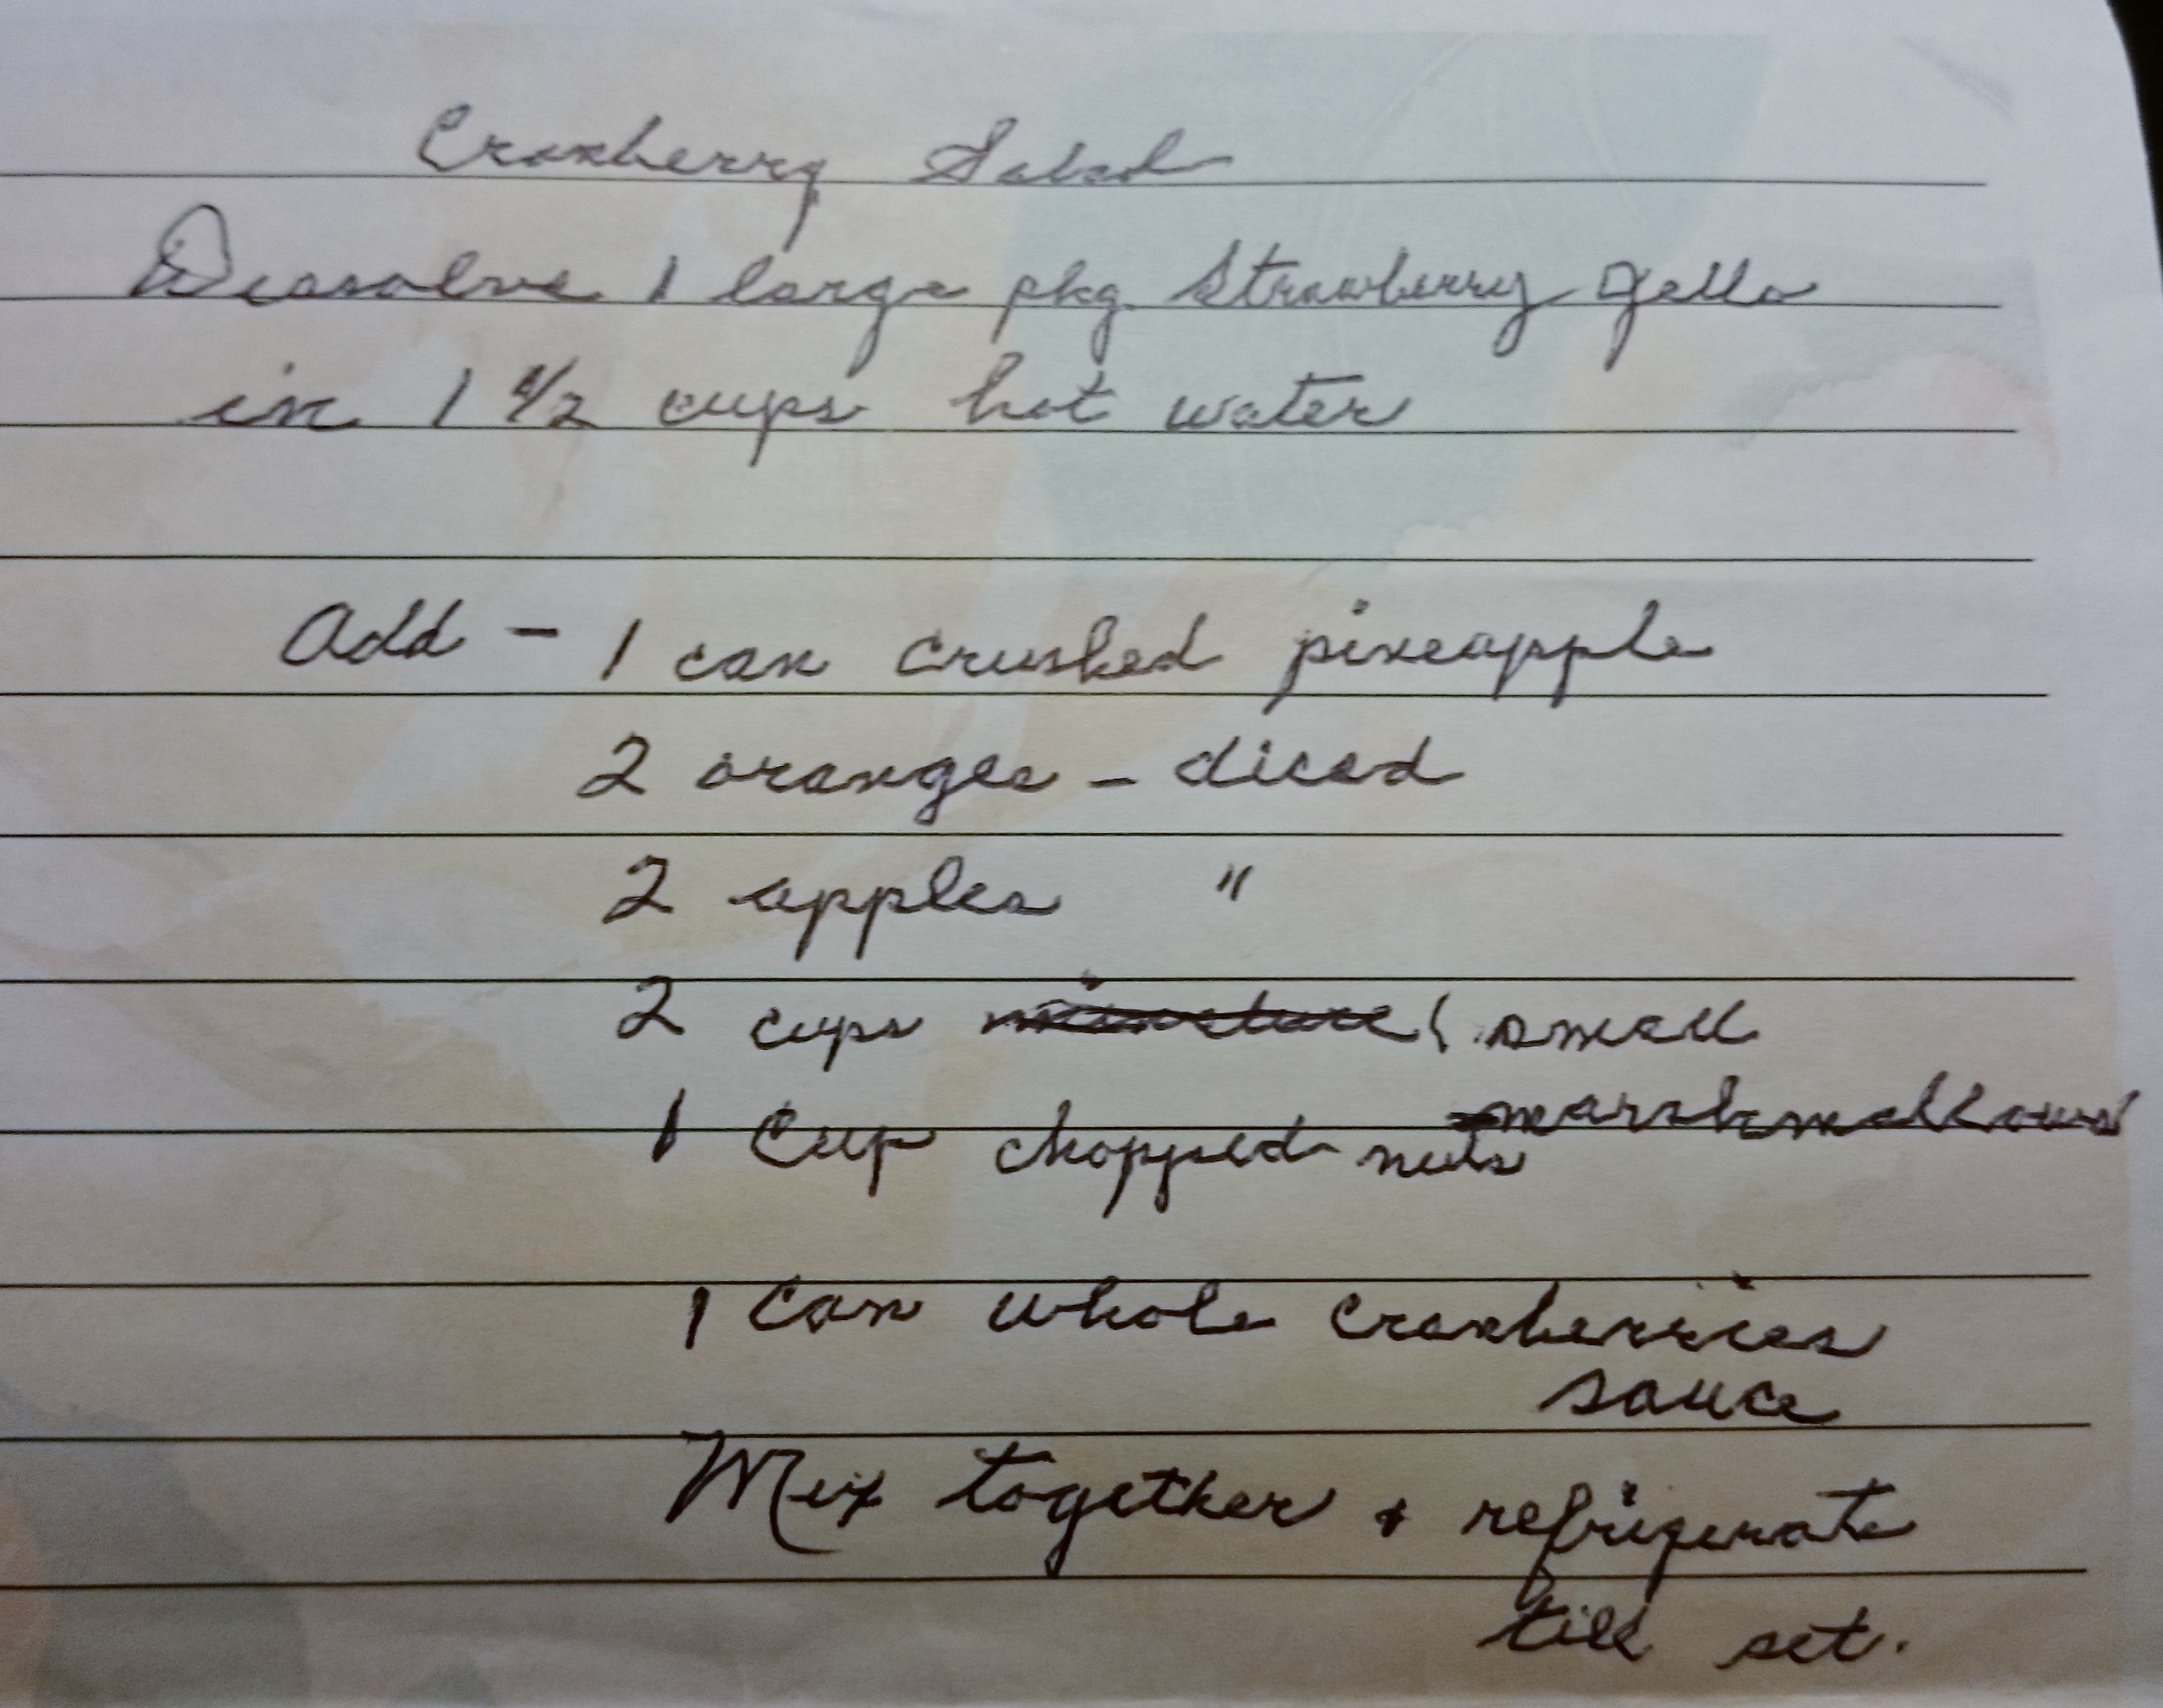 Cranberry Salad
Dissolve 1 large pkg. Strawberry Jello
in 1 1/2 cups hot water
Add - 1 can crushed pineapple
2 oranges - diced
2 apples "
2 cups small
marshmallows
1 Cup chopped nuts
1 Can whole Cranberries
sauce
Mix together & refrigerate
till set.